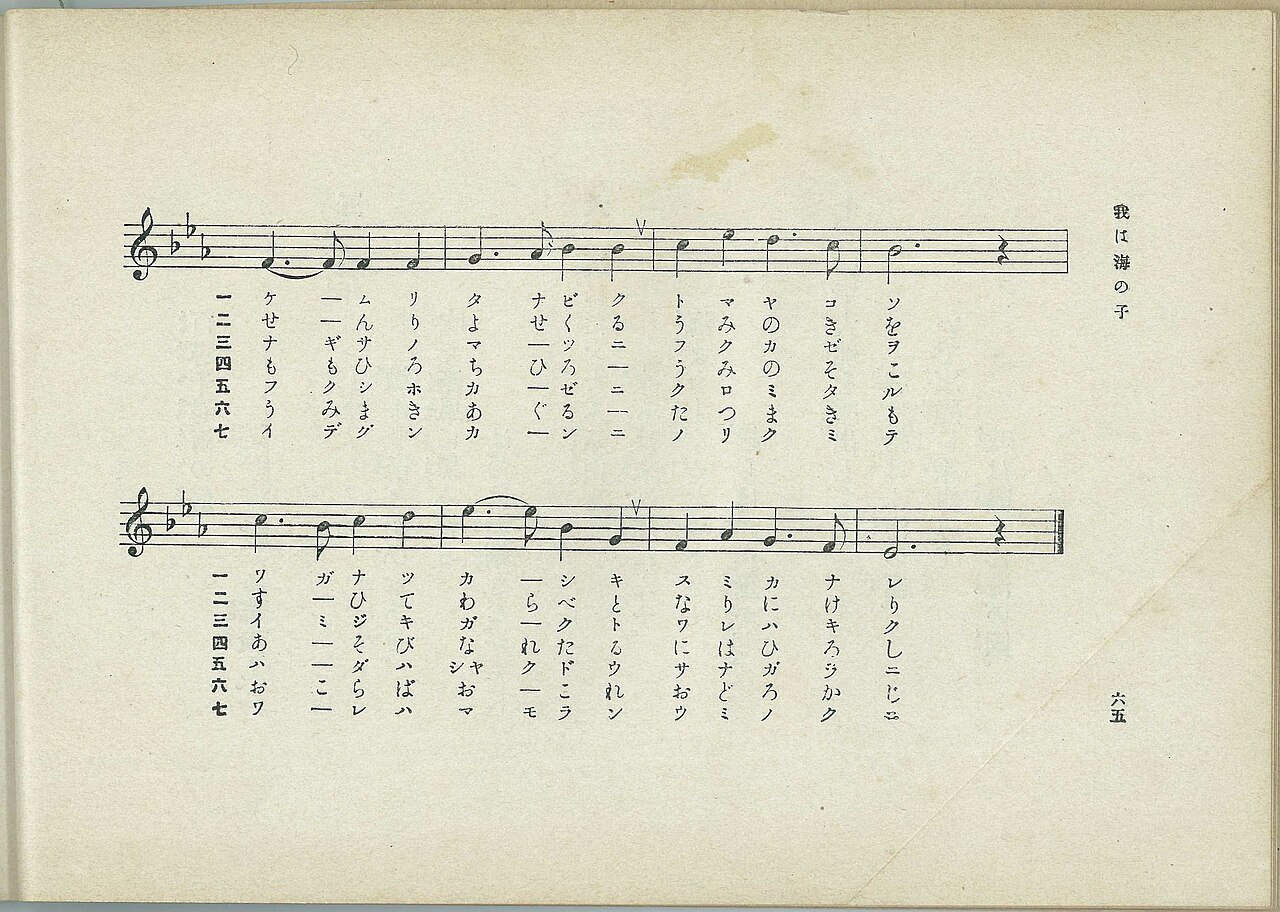 我は海の子
一 ケ ー ム リ タ ナ ビ ク ト マ ヤ コ ソ
二 せ ー ん り よ せ く る う み の き を
三 ナ ギ サ ノ マ ー ツ ニ フ ク カ ゼ ヲ
四 も も ひ ろ ち ひ ろ ー う み の そ こ
五 フ ク シ ホ カ ー ゼ ニ ク ロ ミ タ ル
六 う み ま き あ ぐ る ー た つ ま き も
七 イ デ グ ン カ ー ン ニ ノ リ ク ミ テ
一 ワ ガ ナ ツ カ ー シ キ ス ミ カ ナ レ
二 す ー ひ て わ ら べ と な り に け り
三 イ ミ ジ キ ガ ー ク ト ワ レ ハ キ ク
四 あ ー そ び な れ た る に は ひ ろ し
五 ハ ー ダ ハ シヤ ク ド ウ サ ナ ガ ラ ニ
六 お こ ら ば お ー こ れ お ど ろ か じ
七 ワ ー レ ハ マ モ ラ ン ウ ミ ノ ク ニ
六五